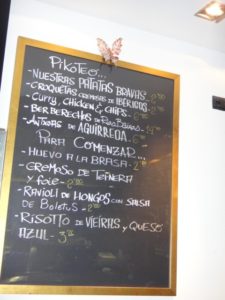 PikoTEO...
- NUESTRAS PATATAS BRAVAS
- CROQUETAS CREMOSAS DE IBÉRICOS
- CURRY, CHICKEN & CHIPS
- BERBERECHOS DE
- DE AGUIRREOA
PARA COMENZAR...
- HUEVO A LA BRASA
- CREMOSO DE TERNERA
Y FOIE
- RAVIOLI DE HONGOS CON SALSA
DE BOLETUS
- RISOTTO DE VIEIRAS Y QUESO
AZUL